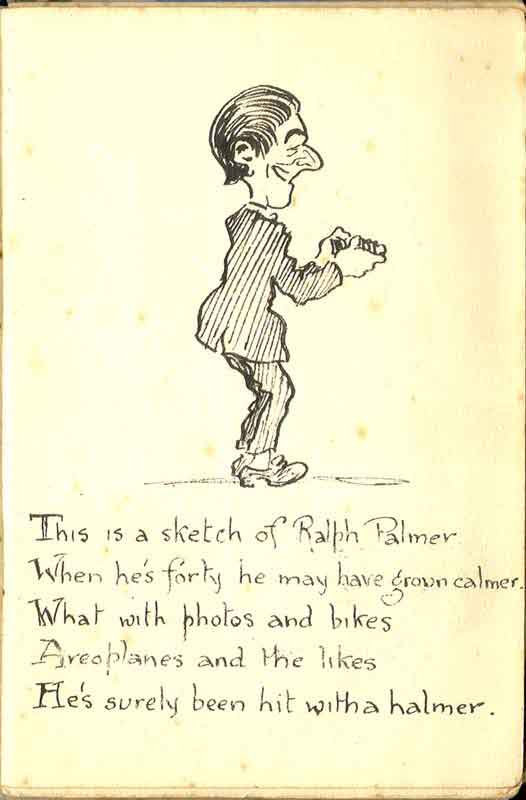 This is a sketch of Ralph Palmer
When he's forty he may have grown calmer.
What with photos and bikes
Areoplanes and the likes
He's surely been hit with a halmer.